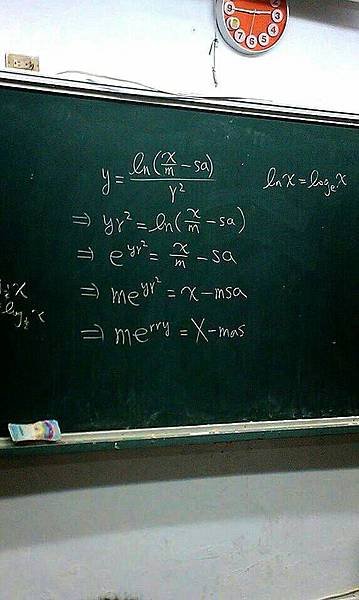 y = ln(x/m - sa) / r²
ln x = log_e x
⇒ yr² = ln(x/m - sa)
⇒ e^(yr²) = x/m - sa
⇒ me^(yr²) = x - msa
⇒ me^(rry) = x - mas